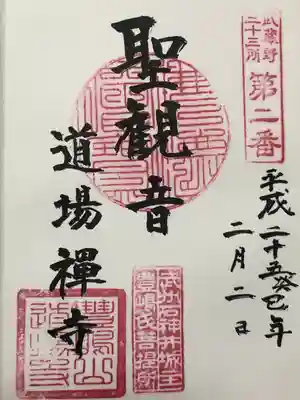 武蔵野
三十三所
第二番
聖観音
道場禪寺
平成二十五癸巳年
二月二日
武州石神井城主
豊嶋氏菩提所
豐嶋山
道場寺